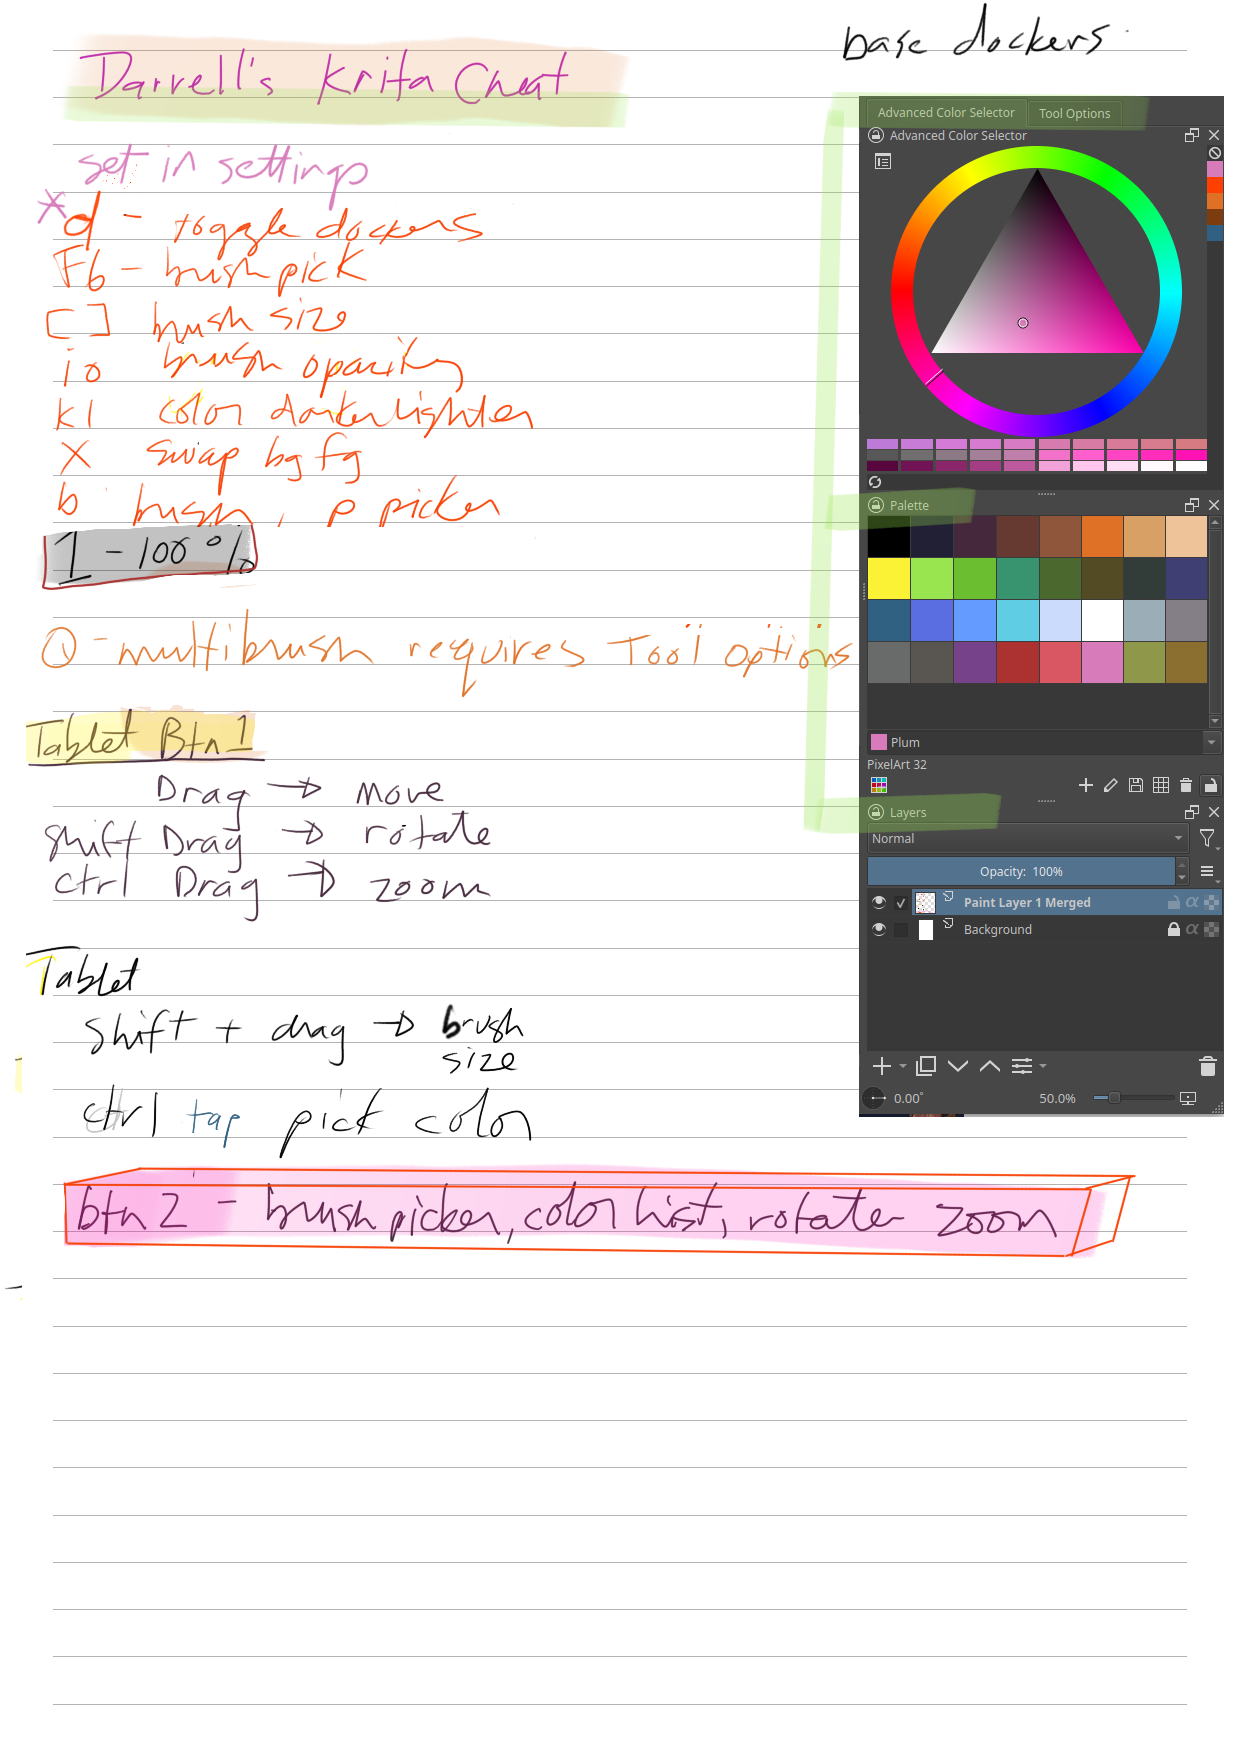 base dockers
Darrell's Krita Cheat
set in settings
* d - toggle dockers
F6 - brush pick
[ ] brush size
i o brush opacity
k l color darker lighter
x swap bg fg
b brush, p picker
1 - 100%
Q - multibrush requires Tool options
Tablet Btn 1
Drag → move
shift Drag → rotate
ctrl Drag → zoom
Tablet
shift + drag → brush
size
ctrl tap pick color
btn 2 - brush picker, color hist, rotate zoom
Advanced Color Selector Tool Options
Advanced Color Selector
Palette
Plum
PixelArt 32
Layers
Normal
Opacity: 100%
Paint Layer 1 Merged
Background
0.00° 50.0%